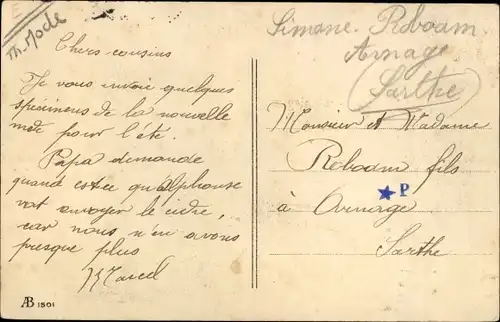 Th. Mode
Chers cousins
Je vous envoie quelques
spécimens de la nouvelle
mode pour l'été.
Papa demande
quand estce qu'alphonse
vat envoyer le cidre,
car nous n'en avons
presque plus
Marcel
AB 1501
Simane Roboam
Arnage
Sarthe
Monsieur et Madame
Roboam fils
P
à Arnage
Sarthe